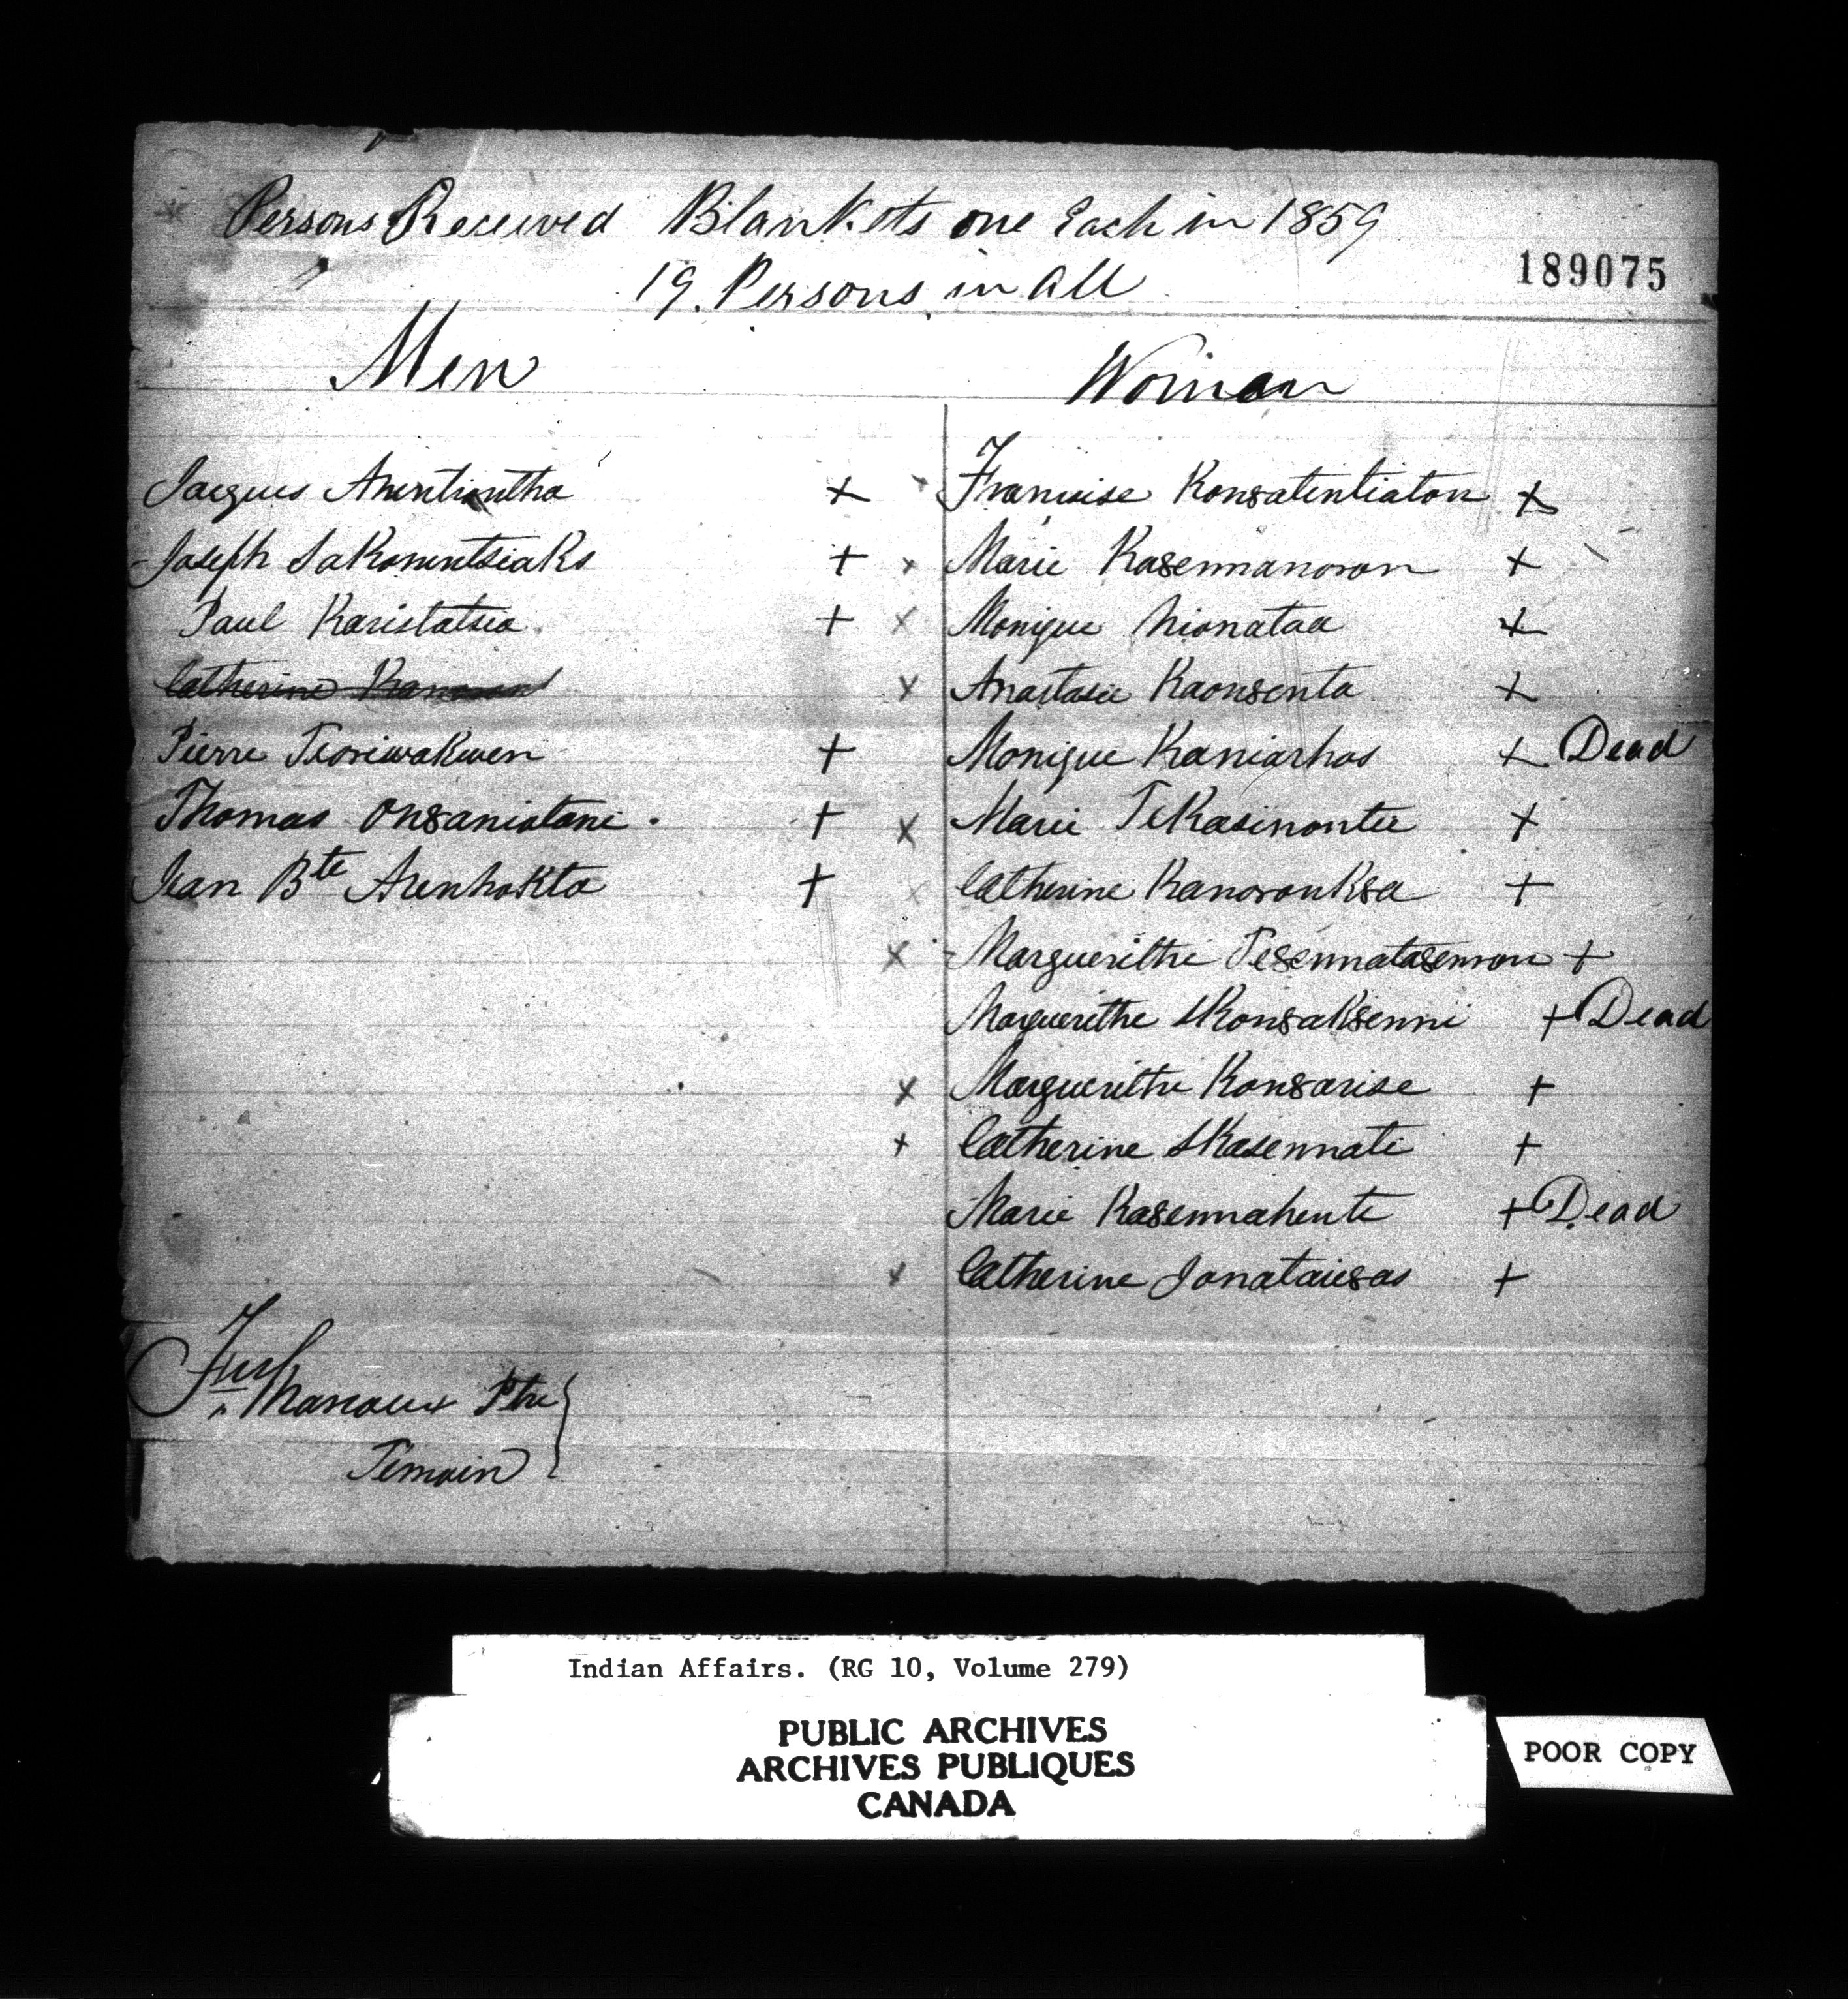 Persons Received Blankets one Each in 1859
189075
19. Persons in all
Men
Woman
Jacques Anentiontha +
Joseph Sakonentsiaks +
Paul Karistatsia +
Catherine
Pierre Teoriwakwen +
Thomas Onsaniotani. +
Jean Bte Arenhokta +
x Francoise Konsatentiaton +
x Marie Kasennanoron +
x Monique Nionataa +
x Anastasie Kaonsenta +
Monique Kaniarhos + Dead
x Marie Tekasinontie +
x Catherine Kanoronksa +
x Marguerithe Tesennatasenron +
Marguerithe Skonsaksenni + Dead
x Marguerithe Konsarise +
+ Catherine Skasennati +
Marie Kasennahente + Dead
x Catherine Jonataiesas +
Frs Marcoux Ptre
Témoin
Indian Affairs. (RG 10, Volume 279)
PUBLIC ARCHIVES
ARCHIVES PUBLIQUES
CANADA
POOR COPY